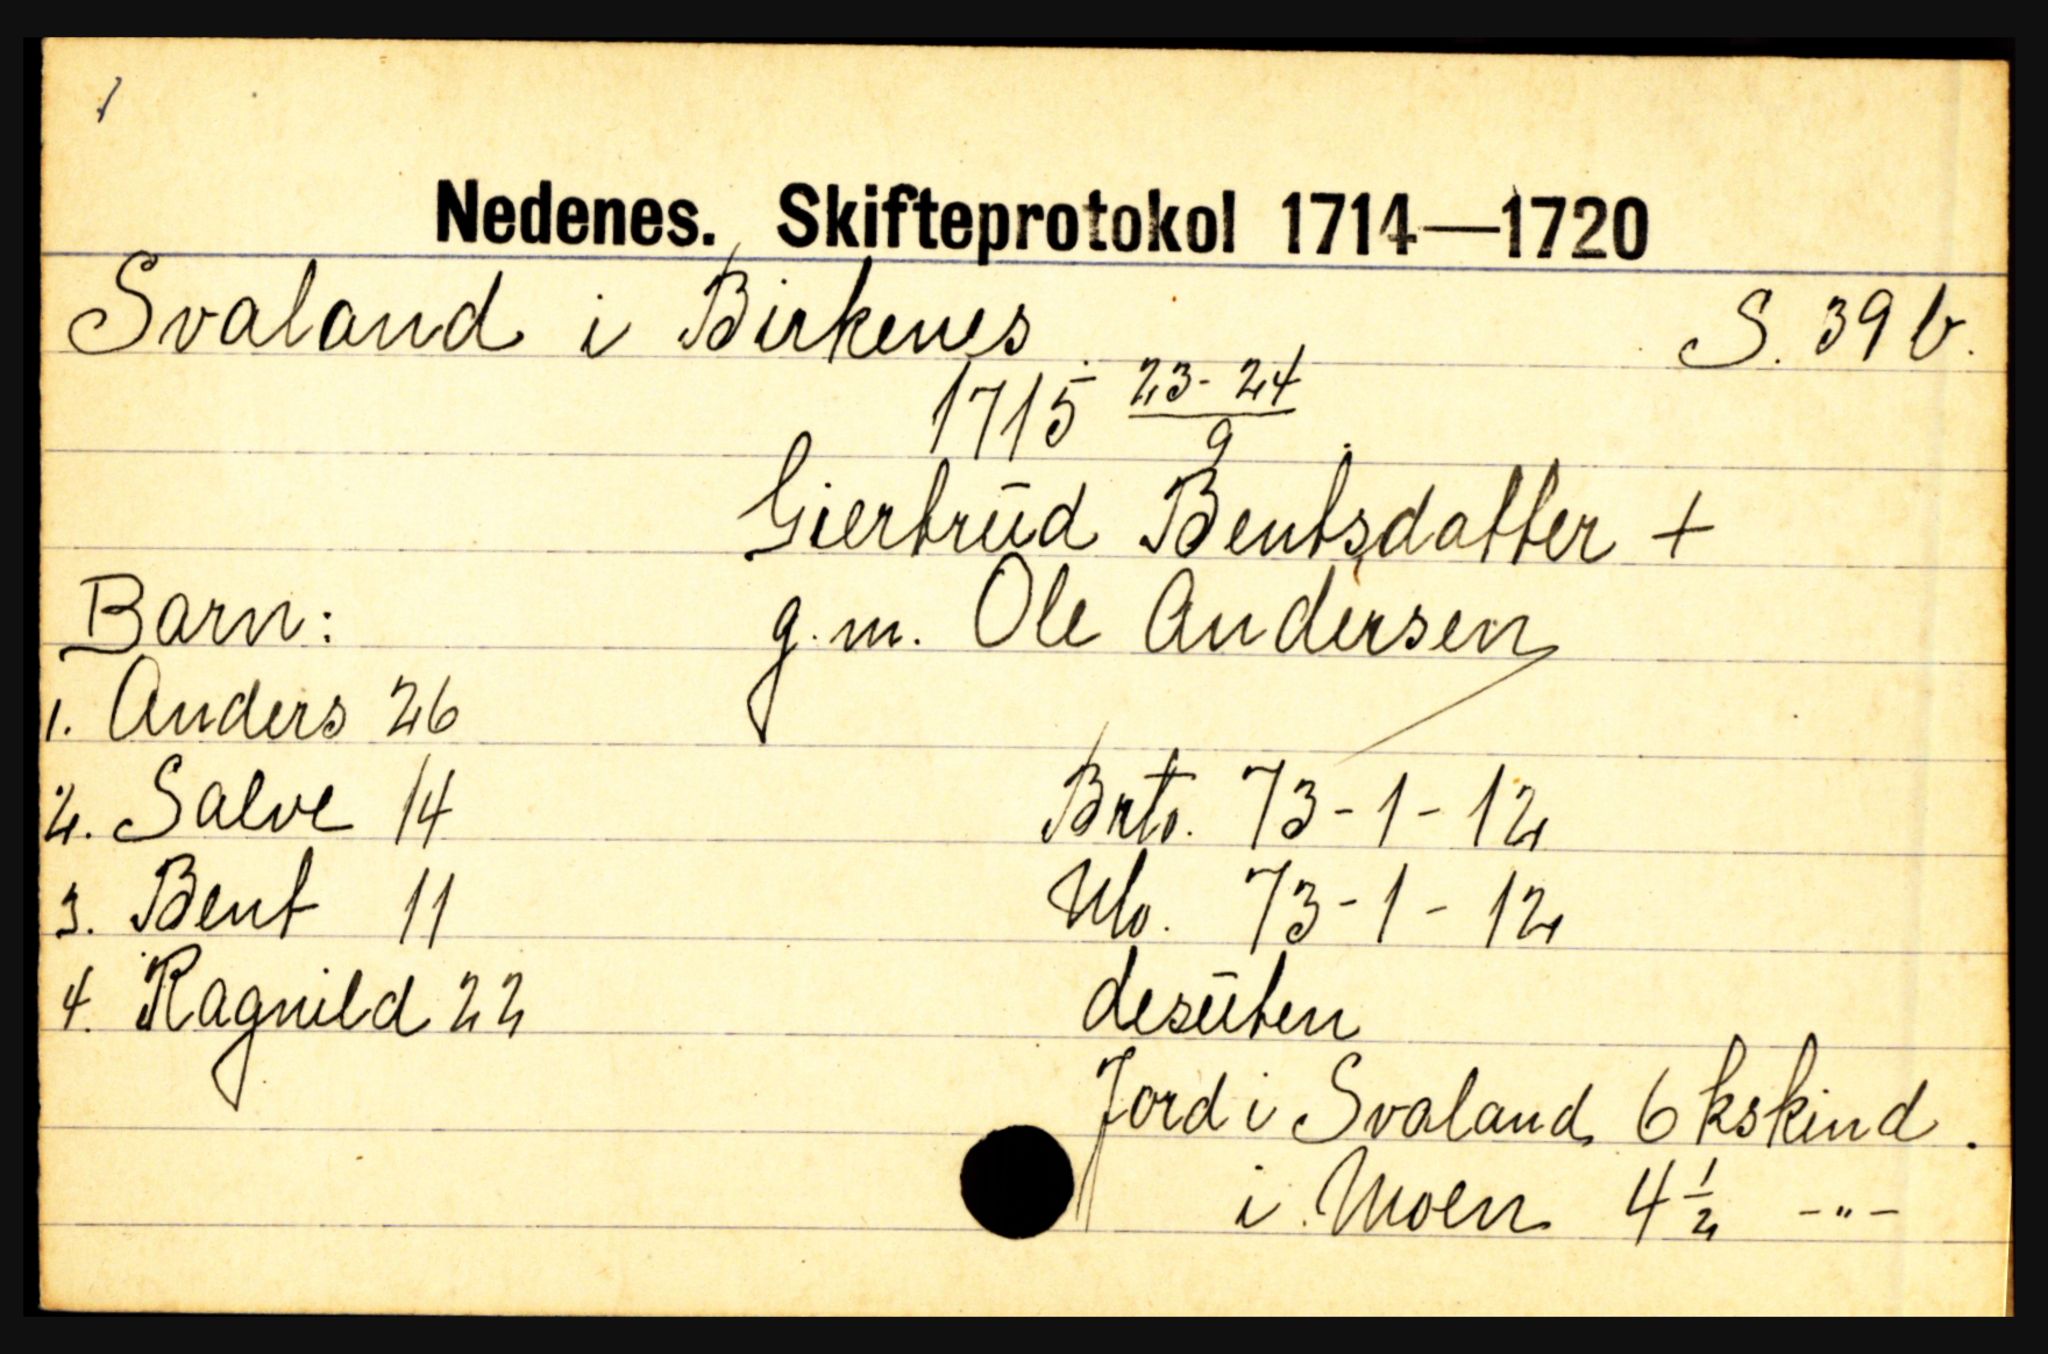 Nedenes. Skifteprotokol 1714—1720
Svaland i Birkenes S. 39 b.
1715 23-24/9
Giertrūd Bentsdatter +
g.m. Ole Andersen
Barn:
1. Anders 26
2. Salve 14
3. Bent 11
4. Ragnild 22
Brto. 73-1-12
Nto. 73-1-12
desūten
Jord i Svaland 6 kskind.
i Moen 4 1/2 -"-